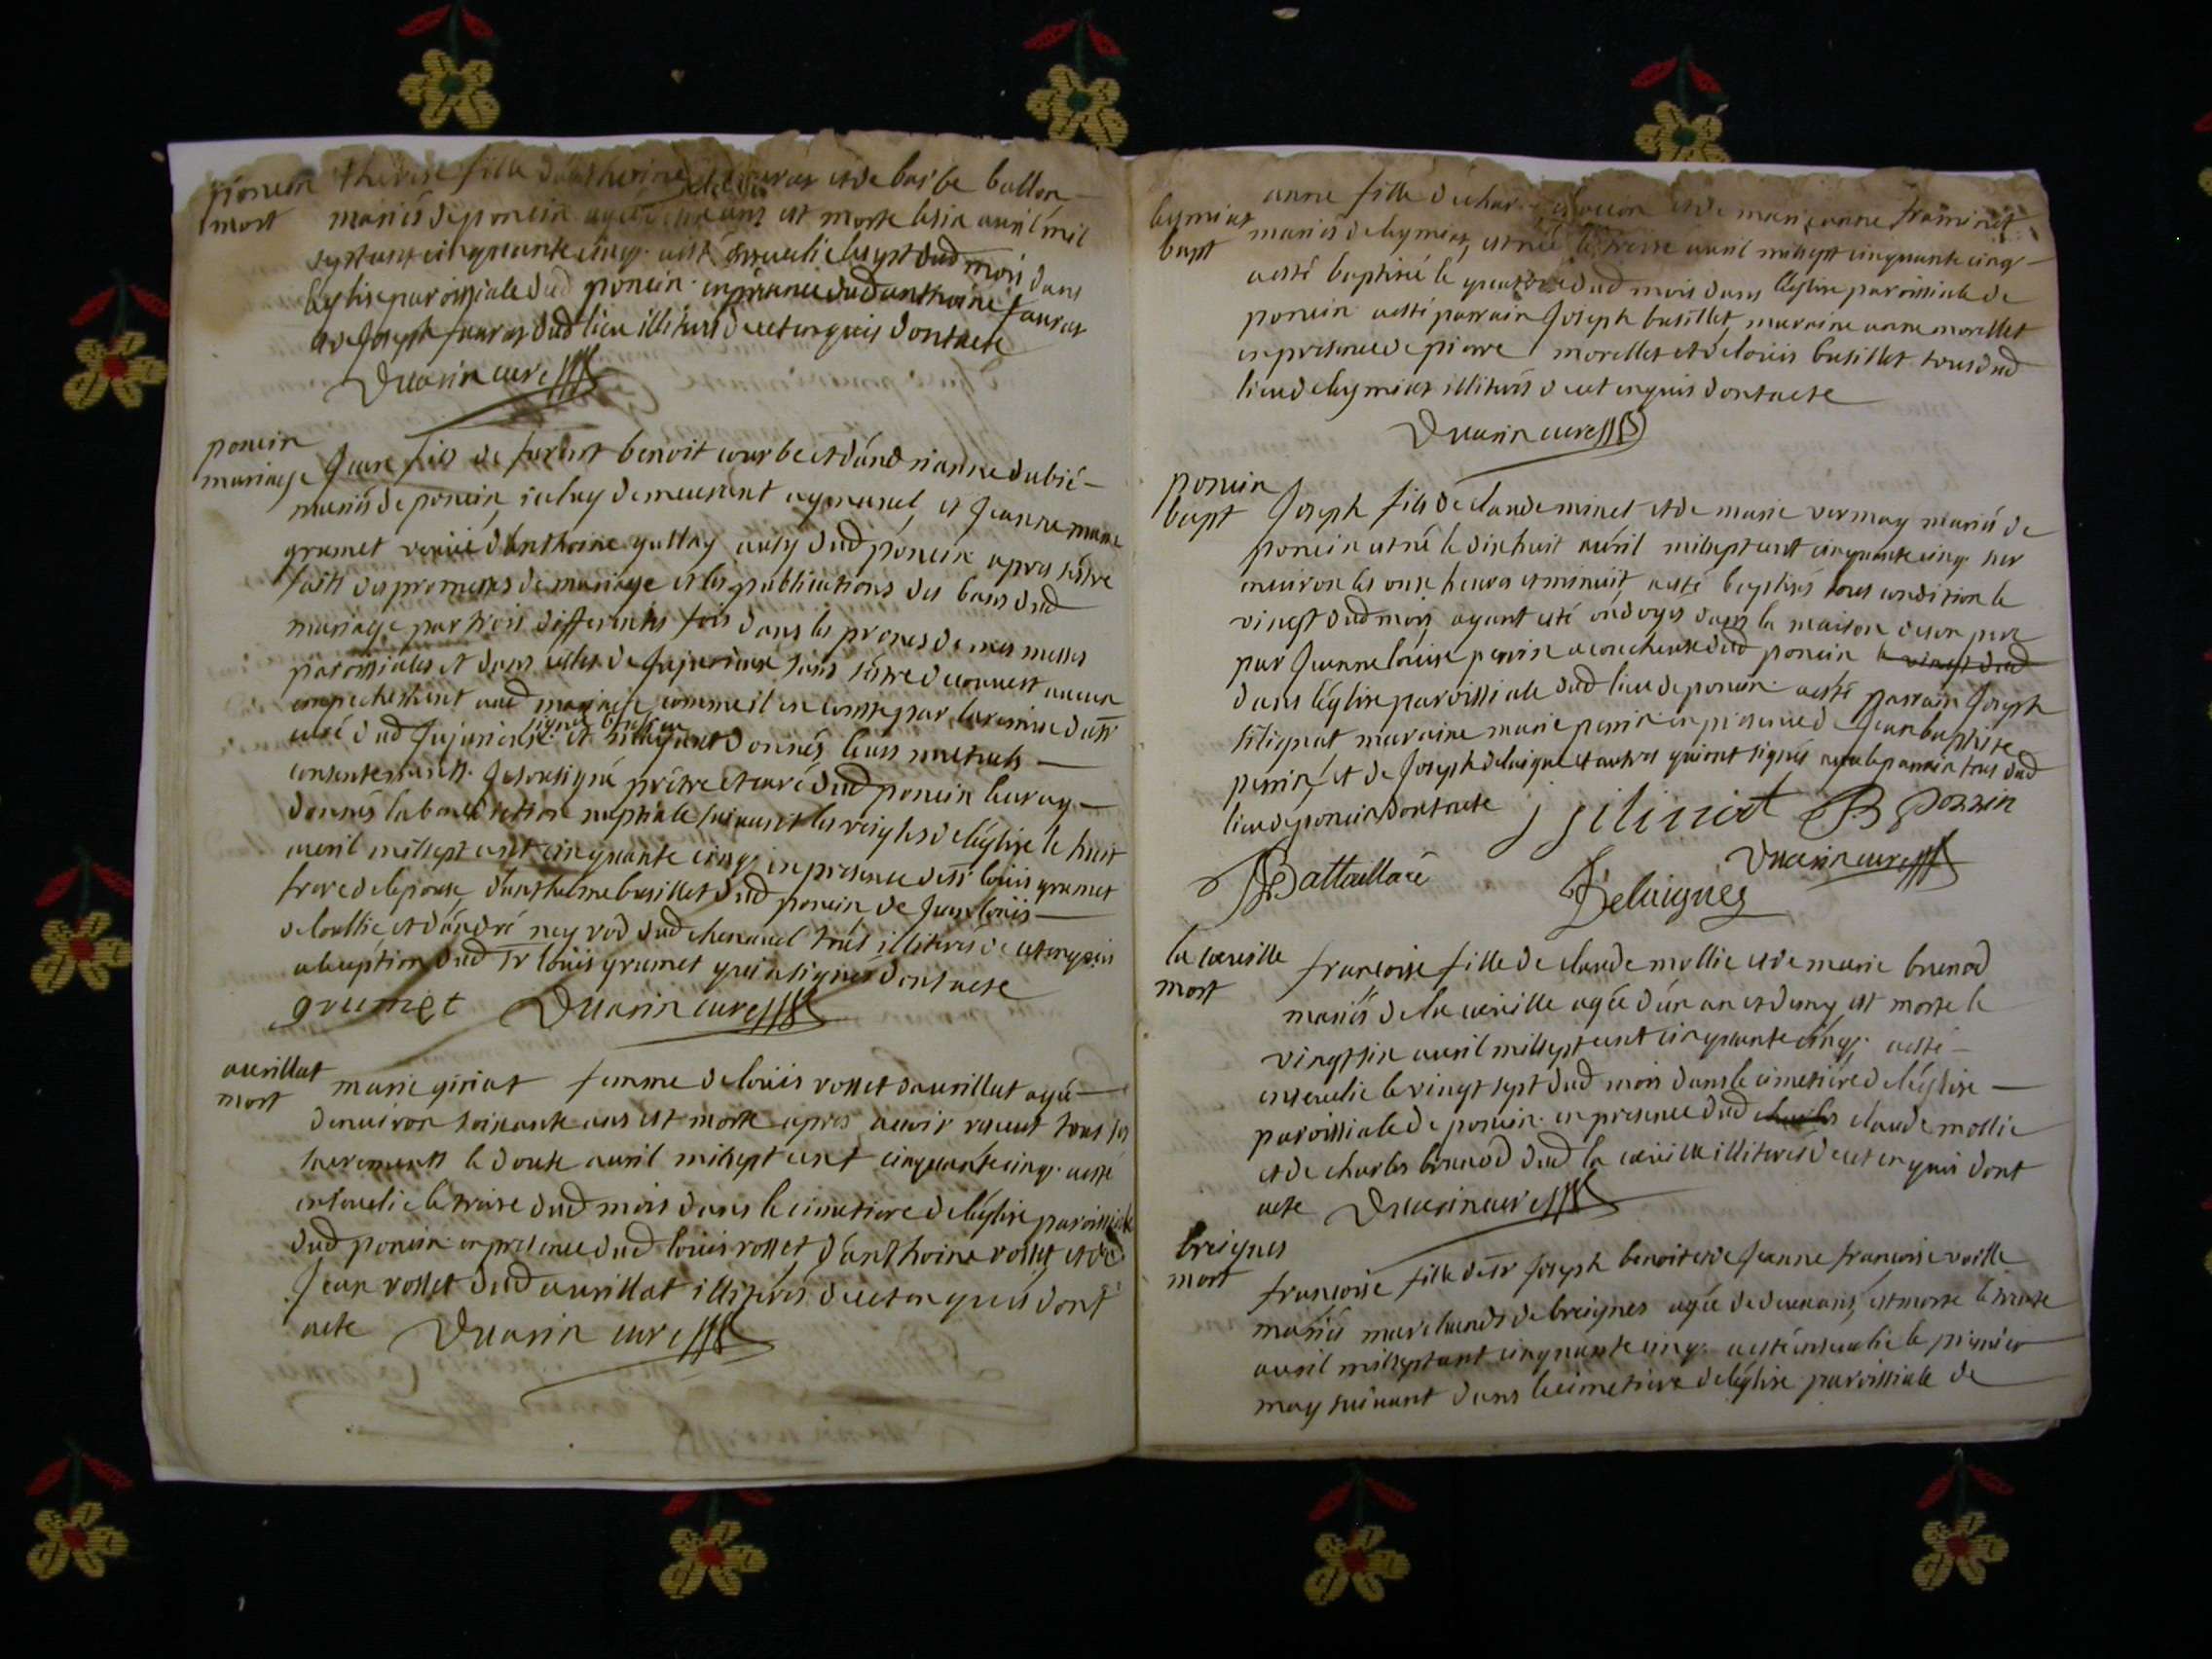 poncin
mort
therese fille danthoine et de barbe ballon
mariés de poncin est morte le six auril mil
sept cent cinquante cinq. a esté enseuelie le sept dud mois dans
leglise paroissiale dud poncin en présence dud anthoine fauras
et de joseph fauras dud lieu illiterés de cet enquis dont acte
curé
poncin
mariage
Jean fils de benoit courbe et dandrianne dubié
mariés de poncin, iceluy demeurant et jeanne marie
grumet veuue danthoine aussy dud poncin apres sestre
faits des promesses de mariage et les publications des bans dud
mariage par trois differentes fois dans les prones de mes messes
paroissiales et dans celles de jujurieux sans sestre decouuert aucun
empechement aud mariage comme il en conste par la remise du sr
curé dud jujurieux et donnés leurs mutuels
consentements. Je soussigné prètre et curé dud poncin leur ay
donnés la benediction nuptiale suiuant les reigles de léglise le huit
auril mil sept cent cinquante cinq. en presence de sr louis grumet
frere de lepouse, danthelme busillet dud poncin, de jean louis
et dandré ney rod dud chenauel tous illiterés de cet enquis
a lexception dud sr louis grumet qui a signé dont acte
grumet curé
aurillat
mort
marie giriat femme de louis rosset daurillat agée
denuiron soixante ans est morte apres auoir receut tous ses
sacrements le douze auril mil sept cent cinquante cinq. a esté
enseuelie le treize dud mois dans le cimetiere de leglise paroissiale
dud poncin en presence dud louis rosset, danthoine rosset, et de
Jean rosset dud aurillat illiterés de cet enquis dont
acte curé
leymiat
bapt
anne fille de et de marianne framinet
mariés de leymiat, est née le treize auril mil sept cinquante cinq
a esté baptisée le quatorze dud mois dans léglise paroissiale de
poncin a esté parrain joseph busillet, maraine anne morellet
en presence de pierre morellet et de louis busillet tous dud
lieu de leymiat illiterés de cet enquis dont acte
curé
poncin
bapt
Joseph fils de claude minet et de marie vermay mariés de
poncin est né le dix huit auril mil sept cent cinquante cinq. sur
enuiron les onze heures et minuit, a esté baptisés sous condition le
vingt dud mois ayant esté ondoyés dans la maison de son pere
par jeanne louise perrin acoucheuse dud poncin le vingt dud
dans léglise paroissiale dud lieu de poncin a esté parrain joseph
silignat maraine marie perrin en presence de jean baptiste
perrin, et de joseph delaigue et autres qui ont signés auec le parrain tous dud
lieu de poncin dont acte j B perrin
Battaillard Delaigues curé
mort
francoise fille de claude mollie et de marie brunod
mariés de la agée dun an et demy est morte le
vingt six auril mil sept cent cinquante cinq. a esté
enseuelie le vingt sept dud mois dans le cimetiere de léglise
paroissiale de poncin en presence dud charles claude mollie
et de charles brunod dud la illiterés de cet enquis dont
acte curé
breignes
mort
francoise fille de sr joseph benoit et de jeanne francoise
mariés marchands de breignes agée de deux ans, est morte le trente
auril mil sept cent cinquante cinq. a esté enseuelie le premier
may suiuant dans le cimetiere de léglise paroissiale de